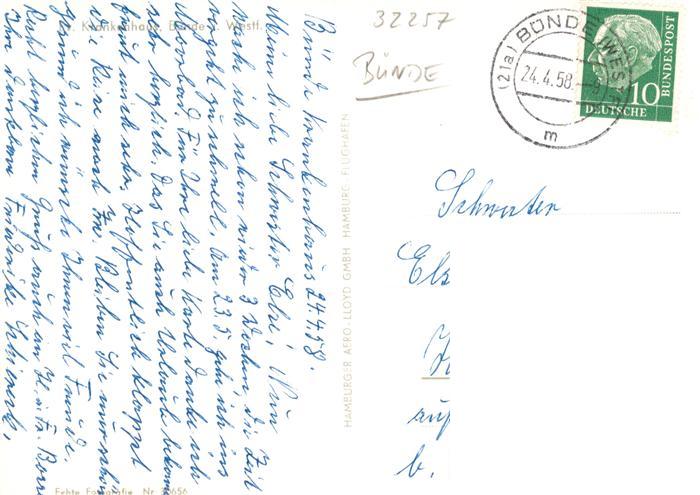 Krankenhaus Bünde i. Westf.
32257
BÜNDE
(21a) BÜNDE (WESTF)
24.4.58.
m
DEUTSCHE
BUNDESPOST
10
Bünde Krankenhaus 24.4.58.
Meine liebe Schwester Else! Nun
bin ich schon wieder 3 Wochen die Zeit
vergeht zu schnell. Am 23.5. gehe ich ins
Moorbad. Für Ihre liebe Karte danke ich
sehr herzlich. Das Sie auch Urlaub bekommen
freut mich sehr, Hoffentlich klappt
die Reise nach Bleiben Sie nur schön
gesund ich wünsche Ihnen viel Freude.
Recht herzlichen Gruß auch an
Ihre dankbare Friederike
HAMBURGER AERO-LLOYD GMBH HAMBURG FLUGHAFEN
Echte Fotografie Nr
Schwester
Els
b.